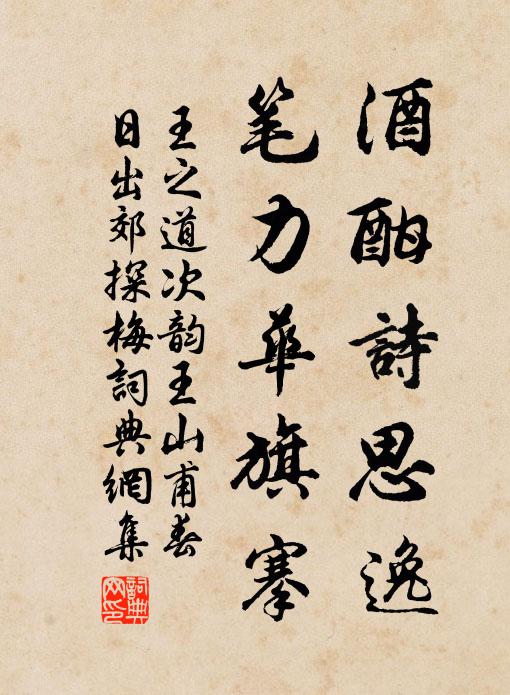 酒酣詩思逸
笔力華旗搴
王之道次韵王山甫春
日出郊探梅詞典網集
詞典
网印